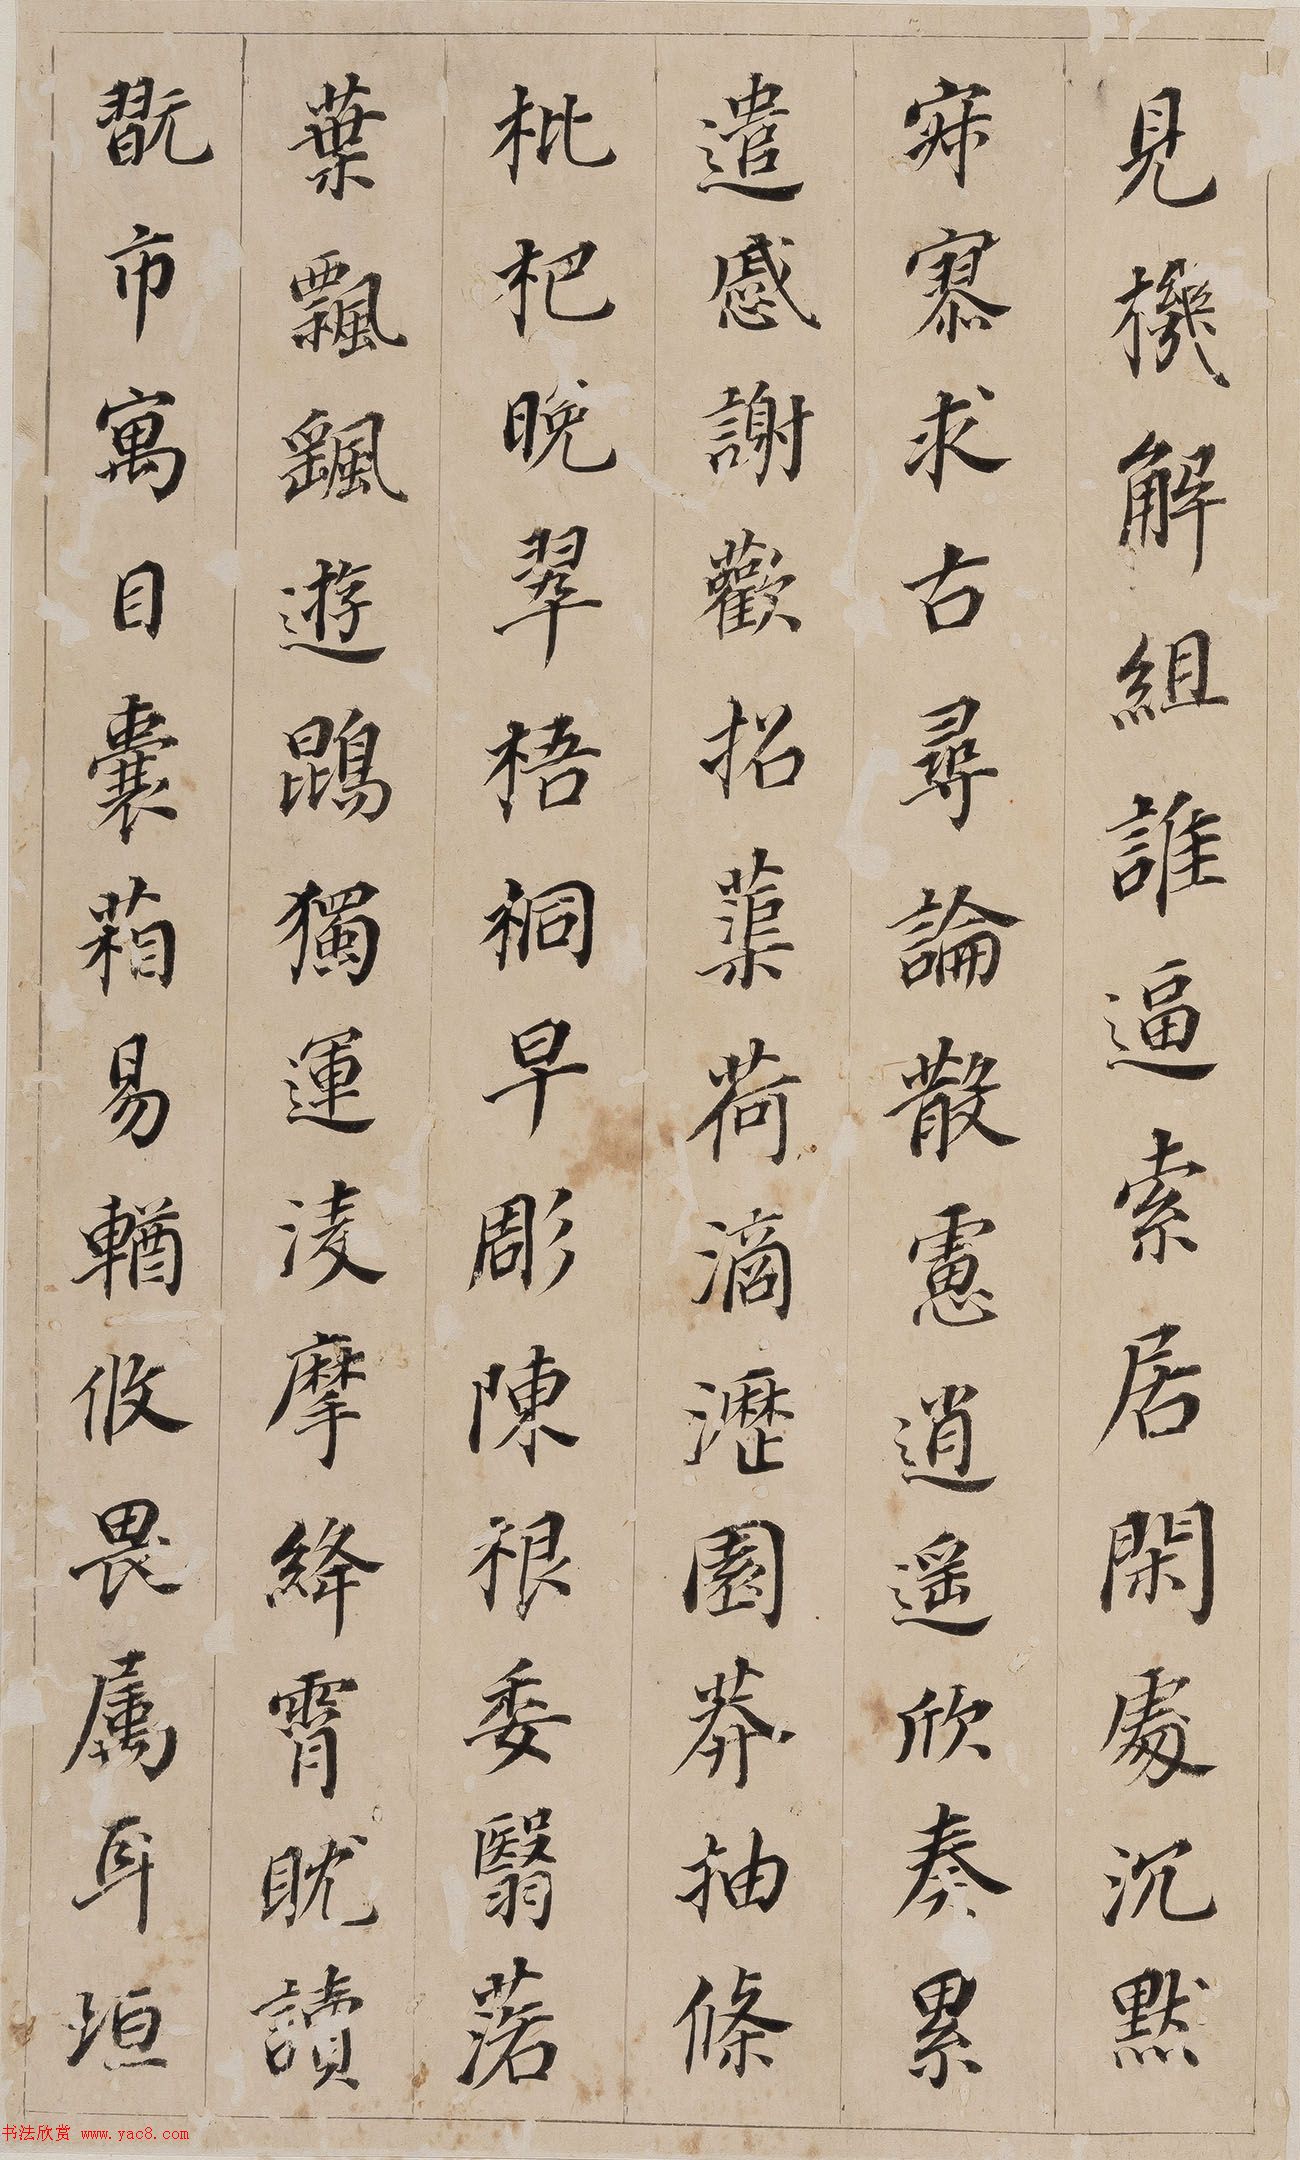 見機解組誰逼索居閑處沉默
寂寥求古尋論散慮逍遥欣奏累
遣慼謝歡招蕖荷滴瀝園莽抽條
枇杷晚翠梧桐早彫陳根委翳落
葉飄颻遊鵾獨運淩摩絳霄耽讀
翫市寓目囊箱易輶攸畏属耳垣
书法欣赏 www.yac8.com